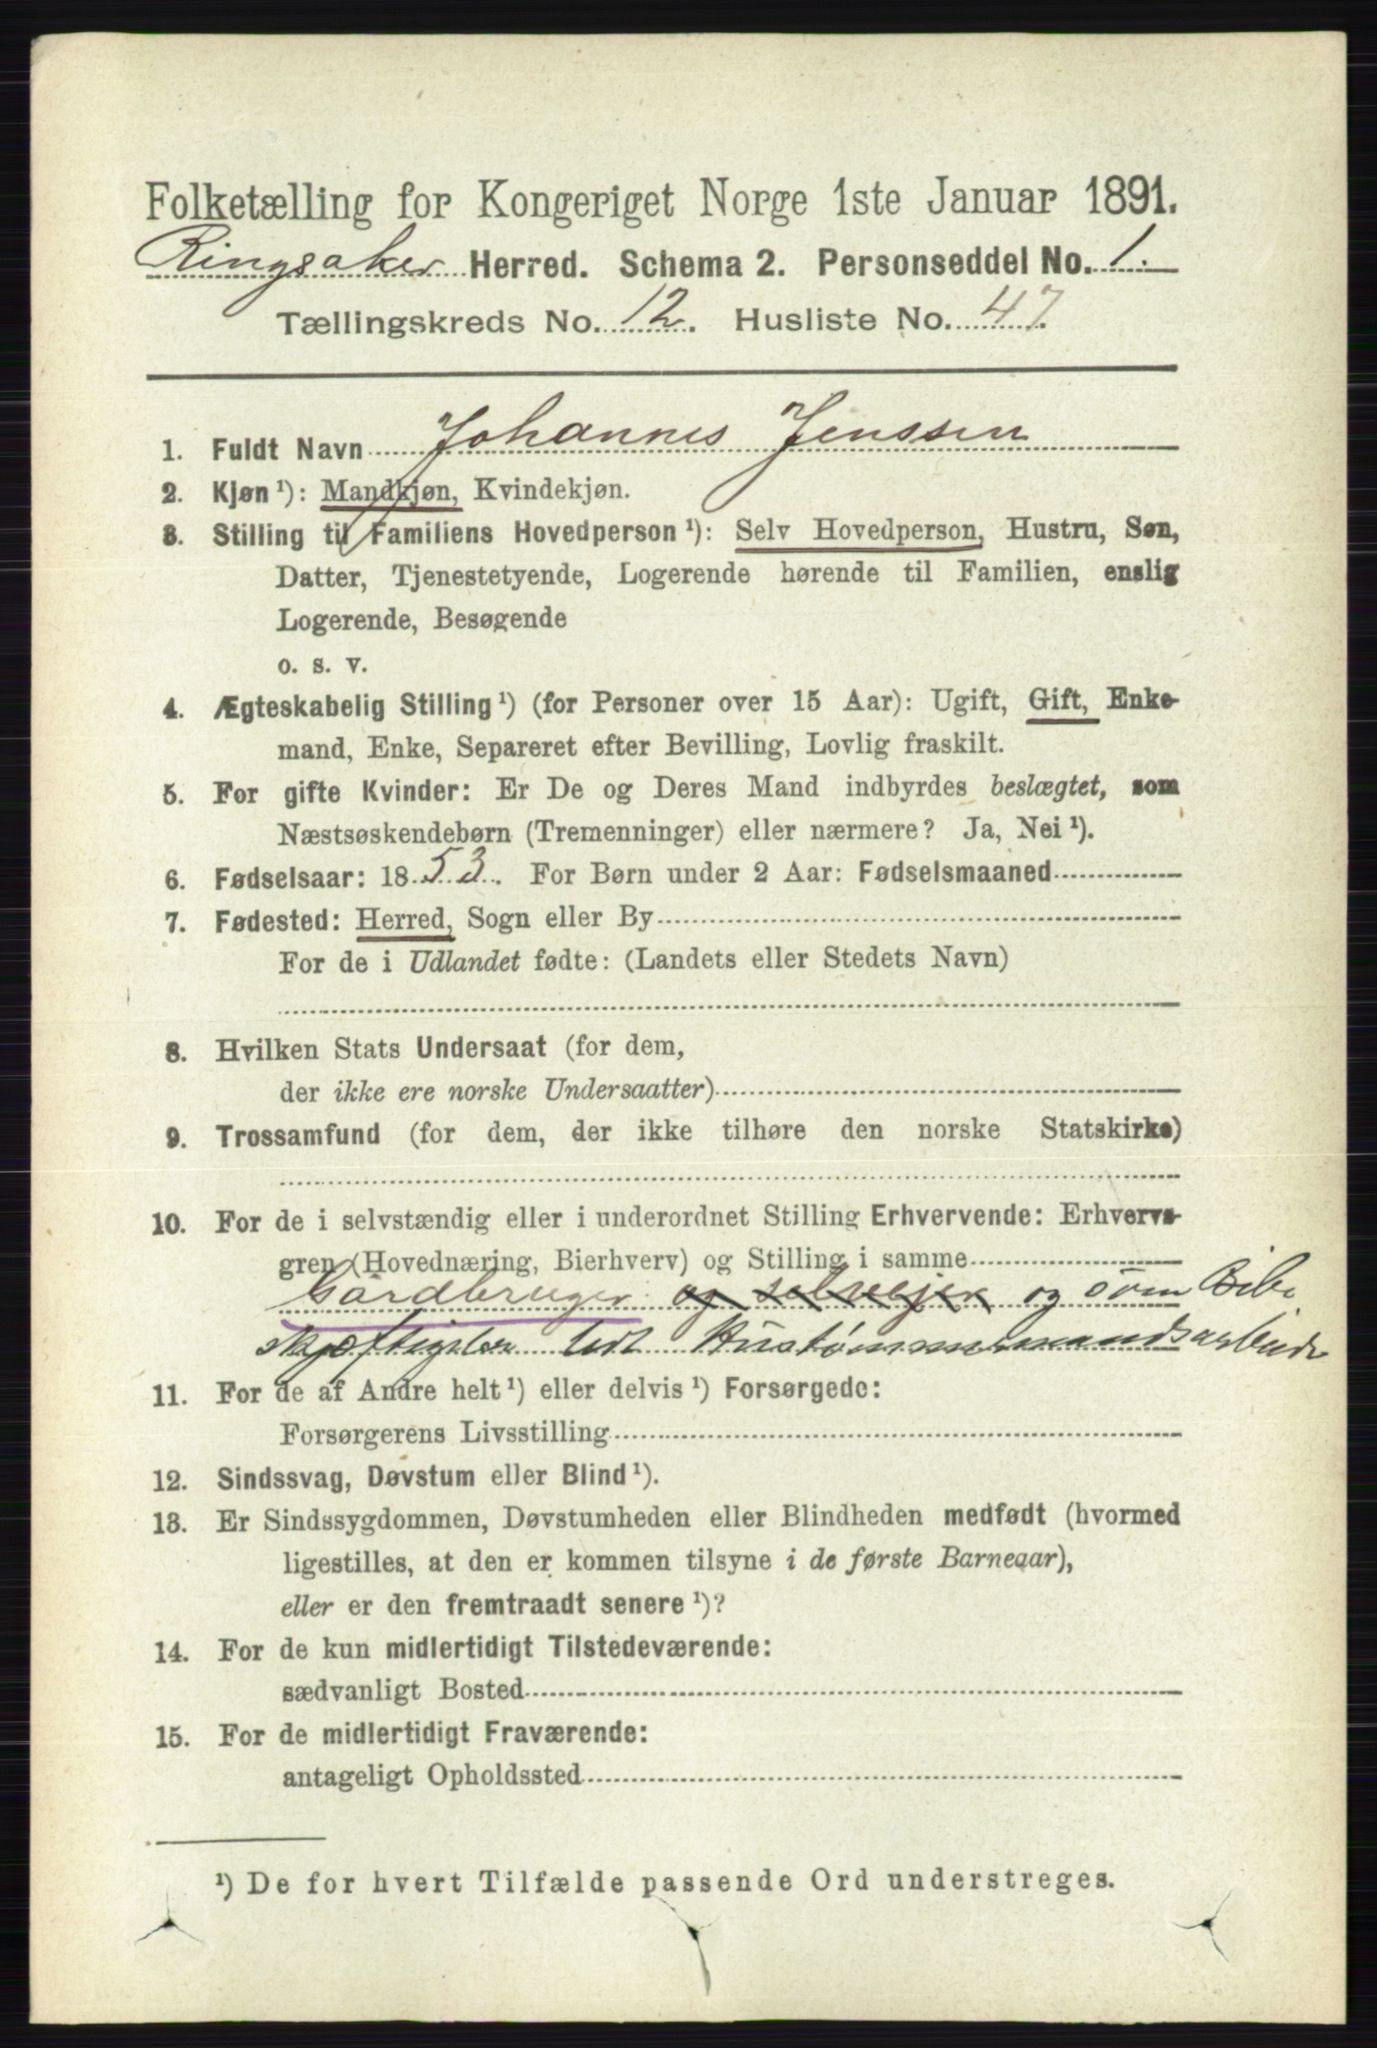 Folketælling for Kongeriget Norge 1ste Januar 1891.
Ringsaker Herred. Schema 2. Personseddel No. 1.
Tællingskreds No. 12. Husliste No. 47.
1. Fuldt Navn Johannes Jenssen
2. Kjøn ¹): Mandkjøn, Kvindekjøn.
3. Stilling til Familiens Hovedperson ¹): Selv Hovedperson, Hustru, Søn,
Datter, Tjenestetyende, Logerende hørende til Familien, enslig
Logerende, Besøgende
o. s. v.
4. Ægteskabelig Stilling ¹) (for Personer over 15 Aar): Ugift, Gift, Enke-
mand, Enke, Separeret efter Bevilling, Lovlig fraskilt.
5. For gifte Kvinder: Er De og Deres Mand indbyrdes beslægtet, som
Næstsøskendebørn (Tremenninger) eller nærmere? Ja, Nei ¹).
6. Fødselsaar: 1853. For Børn under 2 Aar: Fødselsmaaned
7. Fødested: Herred, Sogn eller By
For de i Udlandet fødte: (Landets eller Stedets Navn)
8. Hvilken Stats Undersaat (for dem,
der ikke ere norske Undersaatter)
9. Trossamfund (for dem, der ikke tilhøre den norske Statskirke)
10. For de i selvstændig eller i underordnet Stilling Erhvervende: Erhvervs-
gren (Hovednæring, Bierhverv) og Stilling i samme
Gårdbruger og selveejer og som Bibe
skjæftigelse ledt Hustømmermandsarbeide
11. For de af Andre helt ¹) eller delvis ¹) Forsørgede:
Forsørgerens Livsstilling
12. Sindssvag, Døvstum eller Blind ¹).
13. Er Sindssygdommen, Døvstumheden eller Blindheden medfødt (hvormed
ligestilles, at den er kommen tilsyne i de første Barneaar),
eller er den fremtraadt senere ¹)?
14. For de kun midlertidigt Tilstedeværende:
sædvanligt Bosted
15. For de midlertidigt Fraværende:
antageligt Opholdssted
¹) De for hvert Tilfælde passende Ord understreges.